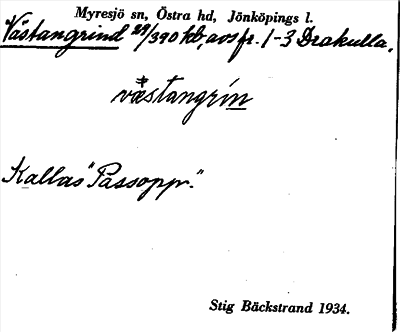 Myresjö sn, Östra hd, Jönköpings l.
Västangrind 29/390 kb, avs fr. 1-3 Drakulla.
västangrin
Kallas "Passopp."
Stig Bäckstrand 1934.